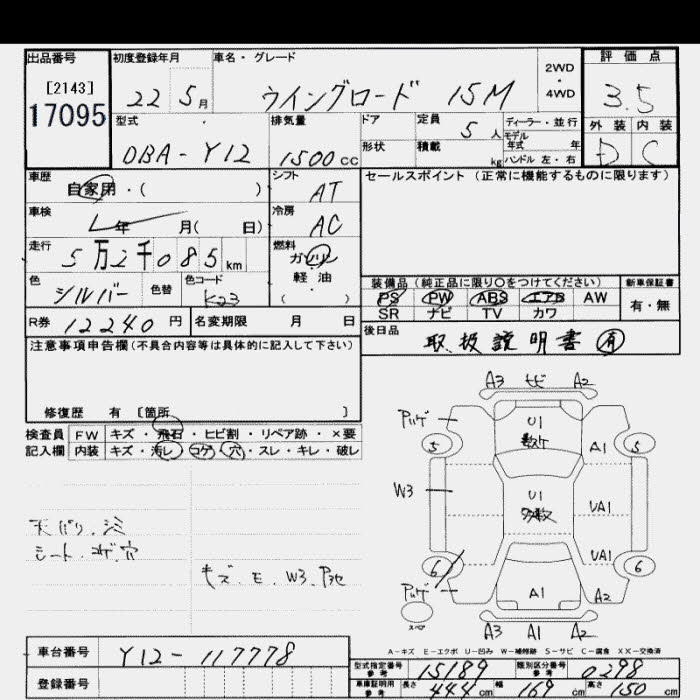 出品番号 初度登録年月 車名・グレード 2WD・4WD 評価点
[2143]
17095
22 5月 ウイングロード 15M 3.5
型式 排気量 ドア 定員 5人 ディーラー・並行 外装 内装
モデル年式 年
DBA-Y12 1500cc 形状 積載 kg ハンドル 左・右 D C
車歴 自家用・( ) シフト AT セールスポイント (正常に機能するものに限ります)
車検 年 月( 日) 冷房 AC
走行 5万2千085km 燃料 ガソリン
軽油
( )
色 シルバー 色替 色コード K23
装備品 (純正品に限り○をつけてください) 新車保証書
PS PW ABS エアB AW 有・無
SR ナビ TV カワ
R券 12240円 名変期限 月 日 後日品 取扱説明書 有
注意事項申告欄(不具合内容等は具体的に記入して下さい)
修復歴 有 [箇所 ]
検査員 FW キズ・飛石・ヒビ割・リペア跡・×要
記入欄 内装 キズ・汚レ・コゲ・穴・スレ・キレ・破レ
A3 ヒビ A2
U1
5 A1 5
W3 U1 多数 UA1
UA1
6 6
A1 A2
スペア
A3 A1 A2
天バリ、シミ
シート、コゲ、穴
キズ、E、W3、P他
A-キズ E-エクボ U-凹み W-補修跡 S-サビ C-腐食 XX-交換済
車台番号 Y12-117778
登録番号
型式指定番号 参考 15189 類別区分番号 参考 0298
車庫証明用 参考 長さ 444cm 幅 169cm 高さ 150cm